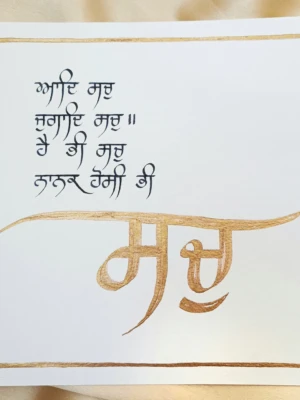 ਆਦਿ ਸਚੁ
ਜੁਗਾਦਿ ਸਚੁ ॥
ਹੈ ਭੀ ਸਚੁ
ਨਾਨਕ ਹੋਸੀ ਭੀ
ਸਚੁ